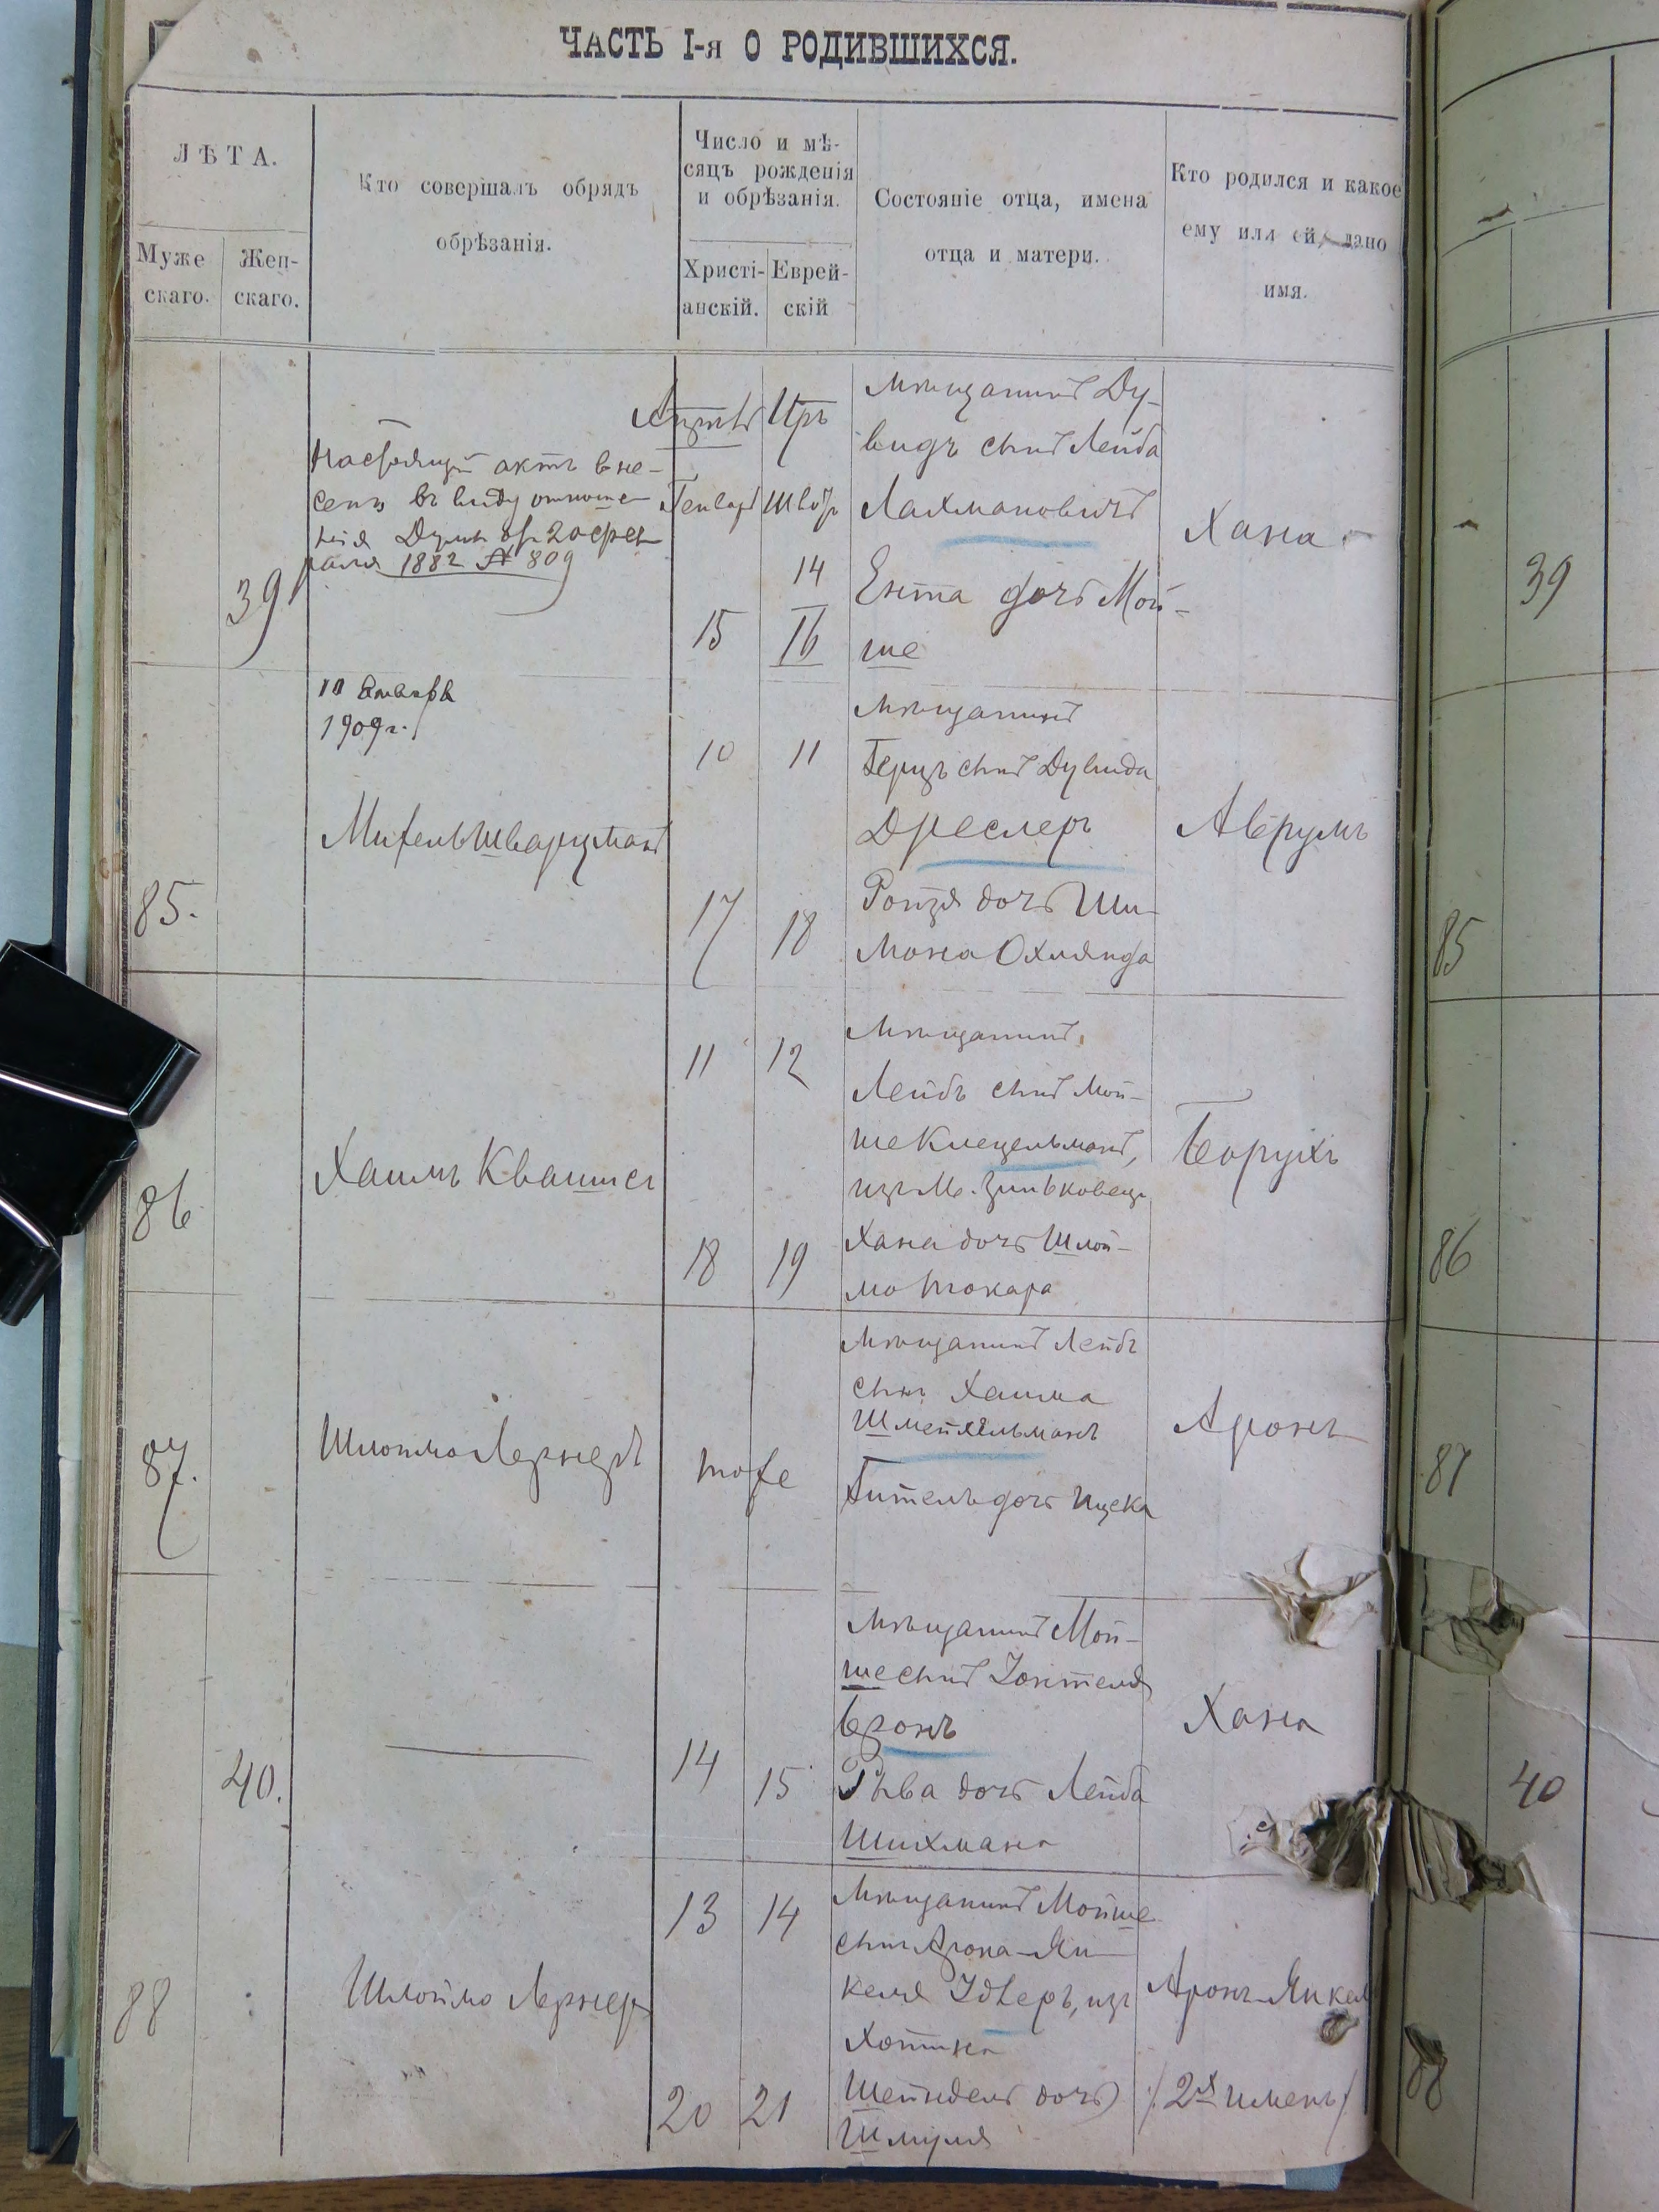 ЧАСТЬ I-я О РОДИВШИХСЯ.
ЛѢТА.
Муже
скаго.
Жен-
скаго.
Кто совершалъ обрядъ
обрѣзанія.
Число и мѣ-
сяцъ рожденія
и обрѣзанія.
Христі-
анскій.
Еврей-
скій
Состояніе отца, имена
отца и матери.
Кто родился и какое
ему или ей, дано
имя.
39
Настоящій актъ вне-
сенъ въ виду отноше-
нія Думы от 20 фев
раля 1882 № 809
Январ
Шват
15
14
16
мѣщанинъ Ду-
видъ сынъ Лейба
Лахмановичъ
Ента дочь Мой-
ше
Хана
39
85.
10 Января
1909 г.
Михель Шварцманъ
10
11
17
18
мѣщанинъ
Герцъ сынъ Дувида
Дреслеръ
Ройзя дочь Ши-
мона Охлянда
Аврумъ
85
86
Хаимъ Квашис
11
12
18
19
Мѣщанинъ
Лейбъ сынъ Мой-
ше Клецельманъ,
изъ м. Зиньковецъ
Хана дочь Шлой-
мо Токара
Борухъ
86
87.
Шлоймо Лернеръ
тоже
Мѣщанинъ Лейбъ
сынъ Хаима
Шмейхельманъ
Гитель дочь Ицека
Аронъ
87
40.
14
15
мѣщанинъ Мой-
ше сынъ Іонтеля
Бронъ
Рива дочь Лейба
Шихмана
Хана
40
88
Шлоймо Лернеръ
13
14
20
21
Мѣщанинъ Мойше
сынъ Арона-Ян-
келя Удлеръ, изъ
Хотина
Шейндель дочь
Шмуля
Аронъ-Янкель
/2хъ именъ/
88